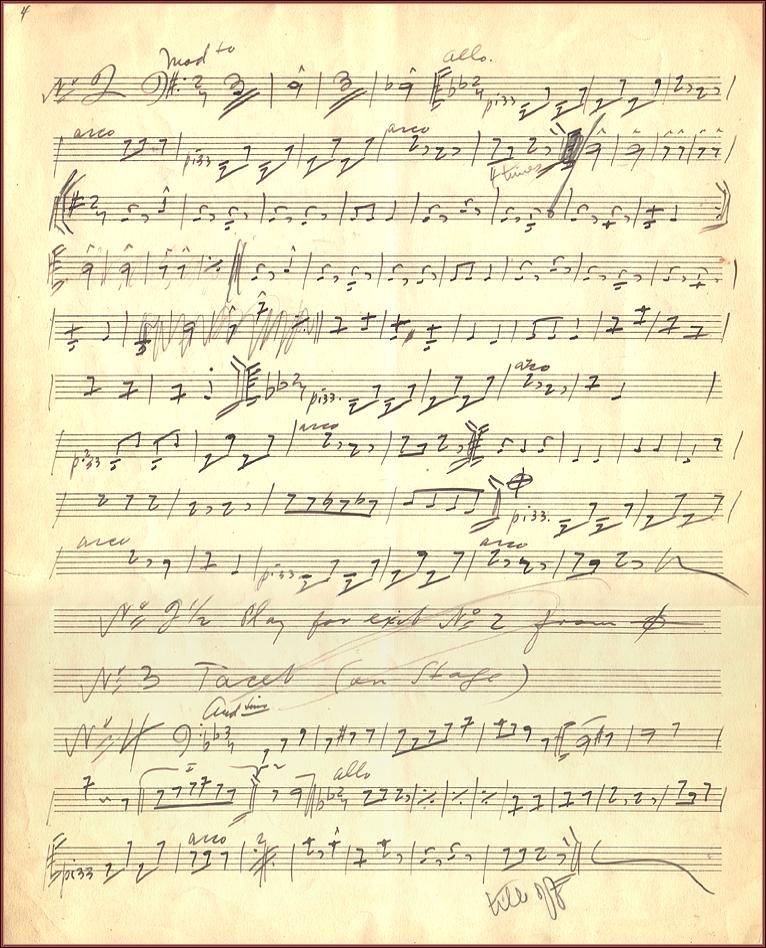 4
Mod to Allo.
No 2 pizz
arco pizz arco
4 times
pizz. arco
pizz arco
pizz.
arco pizz arco
No 2 1/2 Play for exit No 2 from
No 3 Tacet (on Stage)
No 4
allo
pizz arco
till off